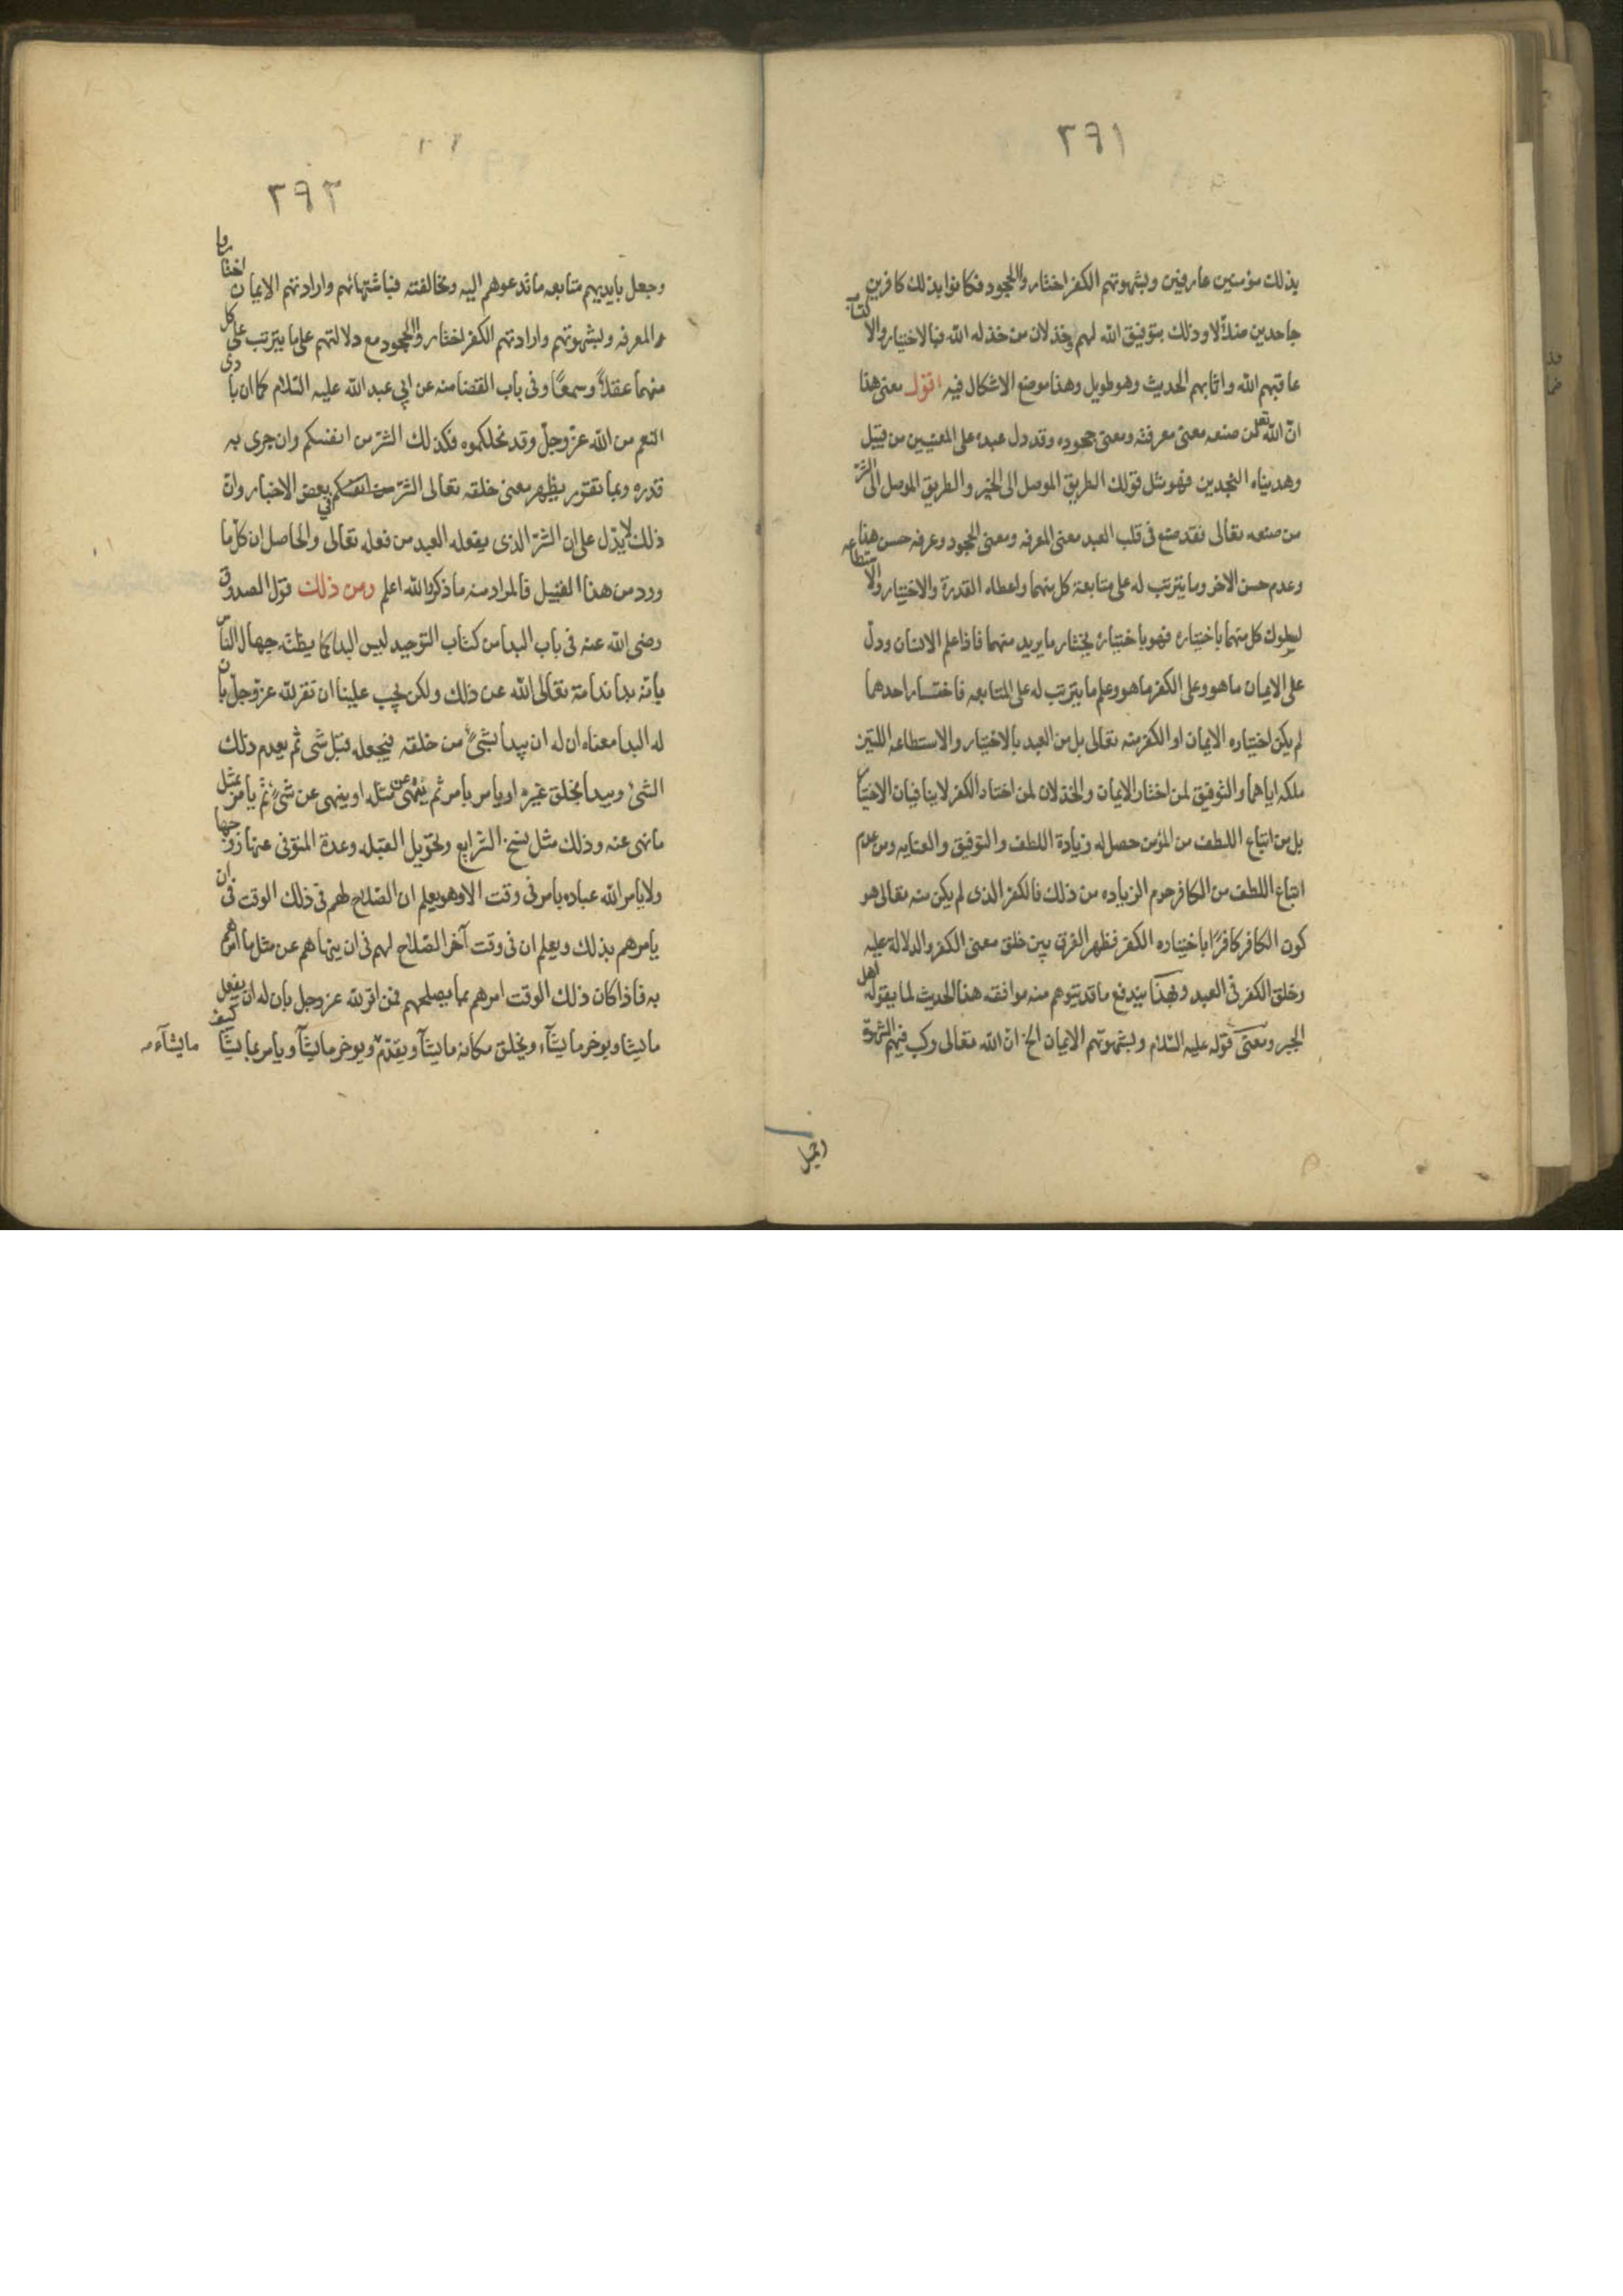 ٢٩١
بذلك مؤمنين عارفين وبشهوتهم الكفر اختاروا الجحود فكانوا بذلك كافرين
جاحدين ضلالا وذلك بتوفيق الله لهم وخذلان من خذله الله فبالاختيار والاكتساب
عاقبهم الله واثابهم الحديث وهو طويل وهذا موضع الاشكال فيه اقول معنى هذا
ان الله تعالى من صنعه معنى معرفته ومعنى جحوده وقد دل عبده على المعنيين من قبيل
وهديناه النجدين فهو مثل قولك الطريق الموصل الى الخير والطريق الموصل الى الشر
من صنعه تعالى فقد صنع فى قلب العبد معنى المعرفه ومعنى الجحود وعرفه حسن هذا
وعدم حسن الاخر وما يترتب له على متابعة كل منهما واعطاه القدرة والاختيار والاستطاعه
لسلوك كل منهما باختياره فهو باختياره يختار ما يريد منهما فاذا علم الانسان ودل
على الايمان ما هو وعلى الكفر ما هو وعلم ما يترتب له على المتابعه فاختار احدهما
لم يكن اختياره الايمان او الكفر منه تعالى بل من العبد بالاختيار والاستطاعه اللتين
ملكه اياهما والتوفيق لمن اختار الايمان والخذلان لمن اختار الكفر لا ينافيان الاختيار
بل من اتباع اللطف من المؤمن حصل له زيادة اللطف والتوفيق والعنايه ومن عدم
اتباع اللطف من الكافر حرم الزياده من ذلك فالكفر الذى لم يكن منه تعالى هو
كون الكافر كافرًا باختياره الكفر فظهر الفرق بين خلق معنى الكفر والدلالة عليه
وخلق الكفر فى العبد وبهذا يندفع ما قد يتوهم منه موافقه هذا الحديث لما يقوله اهل
الجبر ومعنى قوله عليه السلام وبشهوتهم الايمان الخ ان الله تعالى ركب فيهم الشهوة
وجعل
٢٩٢
وجعل بايديهم متابعه ما تدعوهم اليه ومخالفته فباشتهائهم وارادتهم الايمان اختاروا
المعرفه وبشهوتهم وارادتهم الكفر اختاروا الجحود مع دلالتهم على ما يترتب على كل
منهما عقلاً وسمعًا وفى باب القضا منه عن ابى عبد الله عليه السلام كما ان بادى
النعم من الله عز وجل وقد نحلكموه فكذلك الشر من انفسكم وان جرى به
قدره وبما تقرر يظهر معنى خلقه تعالى الشر من انفسكم فى بعض الاخبار وان
ذلك لا يدل على ان الشر الذى يفعله العبد من فعله تعالى والحاصل ان كل ما
ورد من هذا القبيل فالمراد منه ما ذكر والله اعلم ومن ذلك قول الصدوق
رضى الله عنه فى باب البدا من كتاب التوحيد ليس البدا كما يظنه جهال الناس
بانه بدا ندامة تعالى الله عن ذلك ولكن يجب علينا ان نقر لله عز وجل بان
له البدا معناه ان له ان يبدا بشىء من خلقه فيجعله قبل شى ثم يعدم ذلك
الشىء ويبدا بخلق غيره او يامر بامر ثم ينهى عن مثله او ينهى عن شىء ثم يامر بمثل
ما نهى عنه وذلك مثل نسخ الشرايع وتحويل القبله وعدة المتوفى عنها زوجها
ولا يامر الله عباده بامر فى وقت الا وهو يعلم ان الصلاح لهم فى ذلك الوقت فى ان
يامرهم بذلك ويعلم ان فى وقت آخر الصلاح لهم فى ان ينهاهم عن مثل ما امرهم
به فاذا كان ذلك الوقت امرهم بما يصلحهم فمن اقر لله عز وجل بان له ان يفعل
ما يشا ويوخر ما يشآء ويخلق مكانه ما يشآ ويقدم ويوخر ما يشآ ويامر بما يشآ كيف
ما يشآء